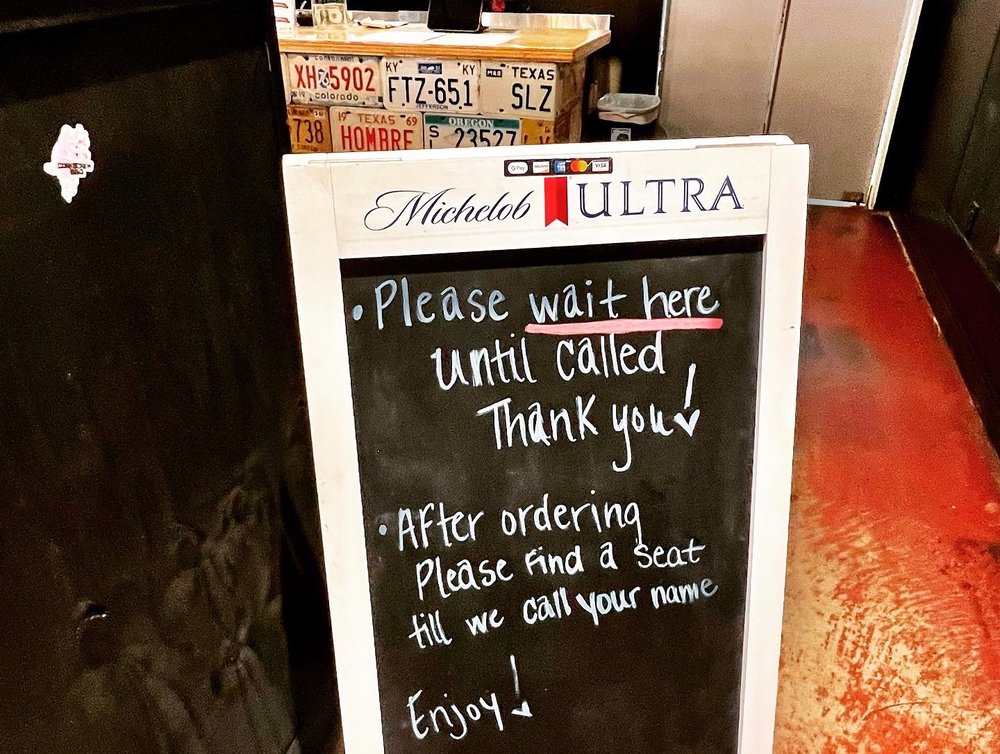 XH 5902
Colorado
KY KY
FTZ-651
JEFFERSON
TEXAS
SLZ
738
19 TEXAS 69
HOMBRE
OREGON
23527
G Pay
VISA
Michelob ULTRA
• Please wait here
until called
Thank you
• After ordering
Please find a seat
till we call your name
Enjoy